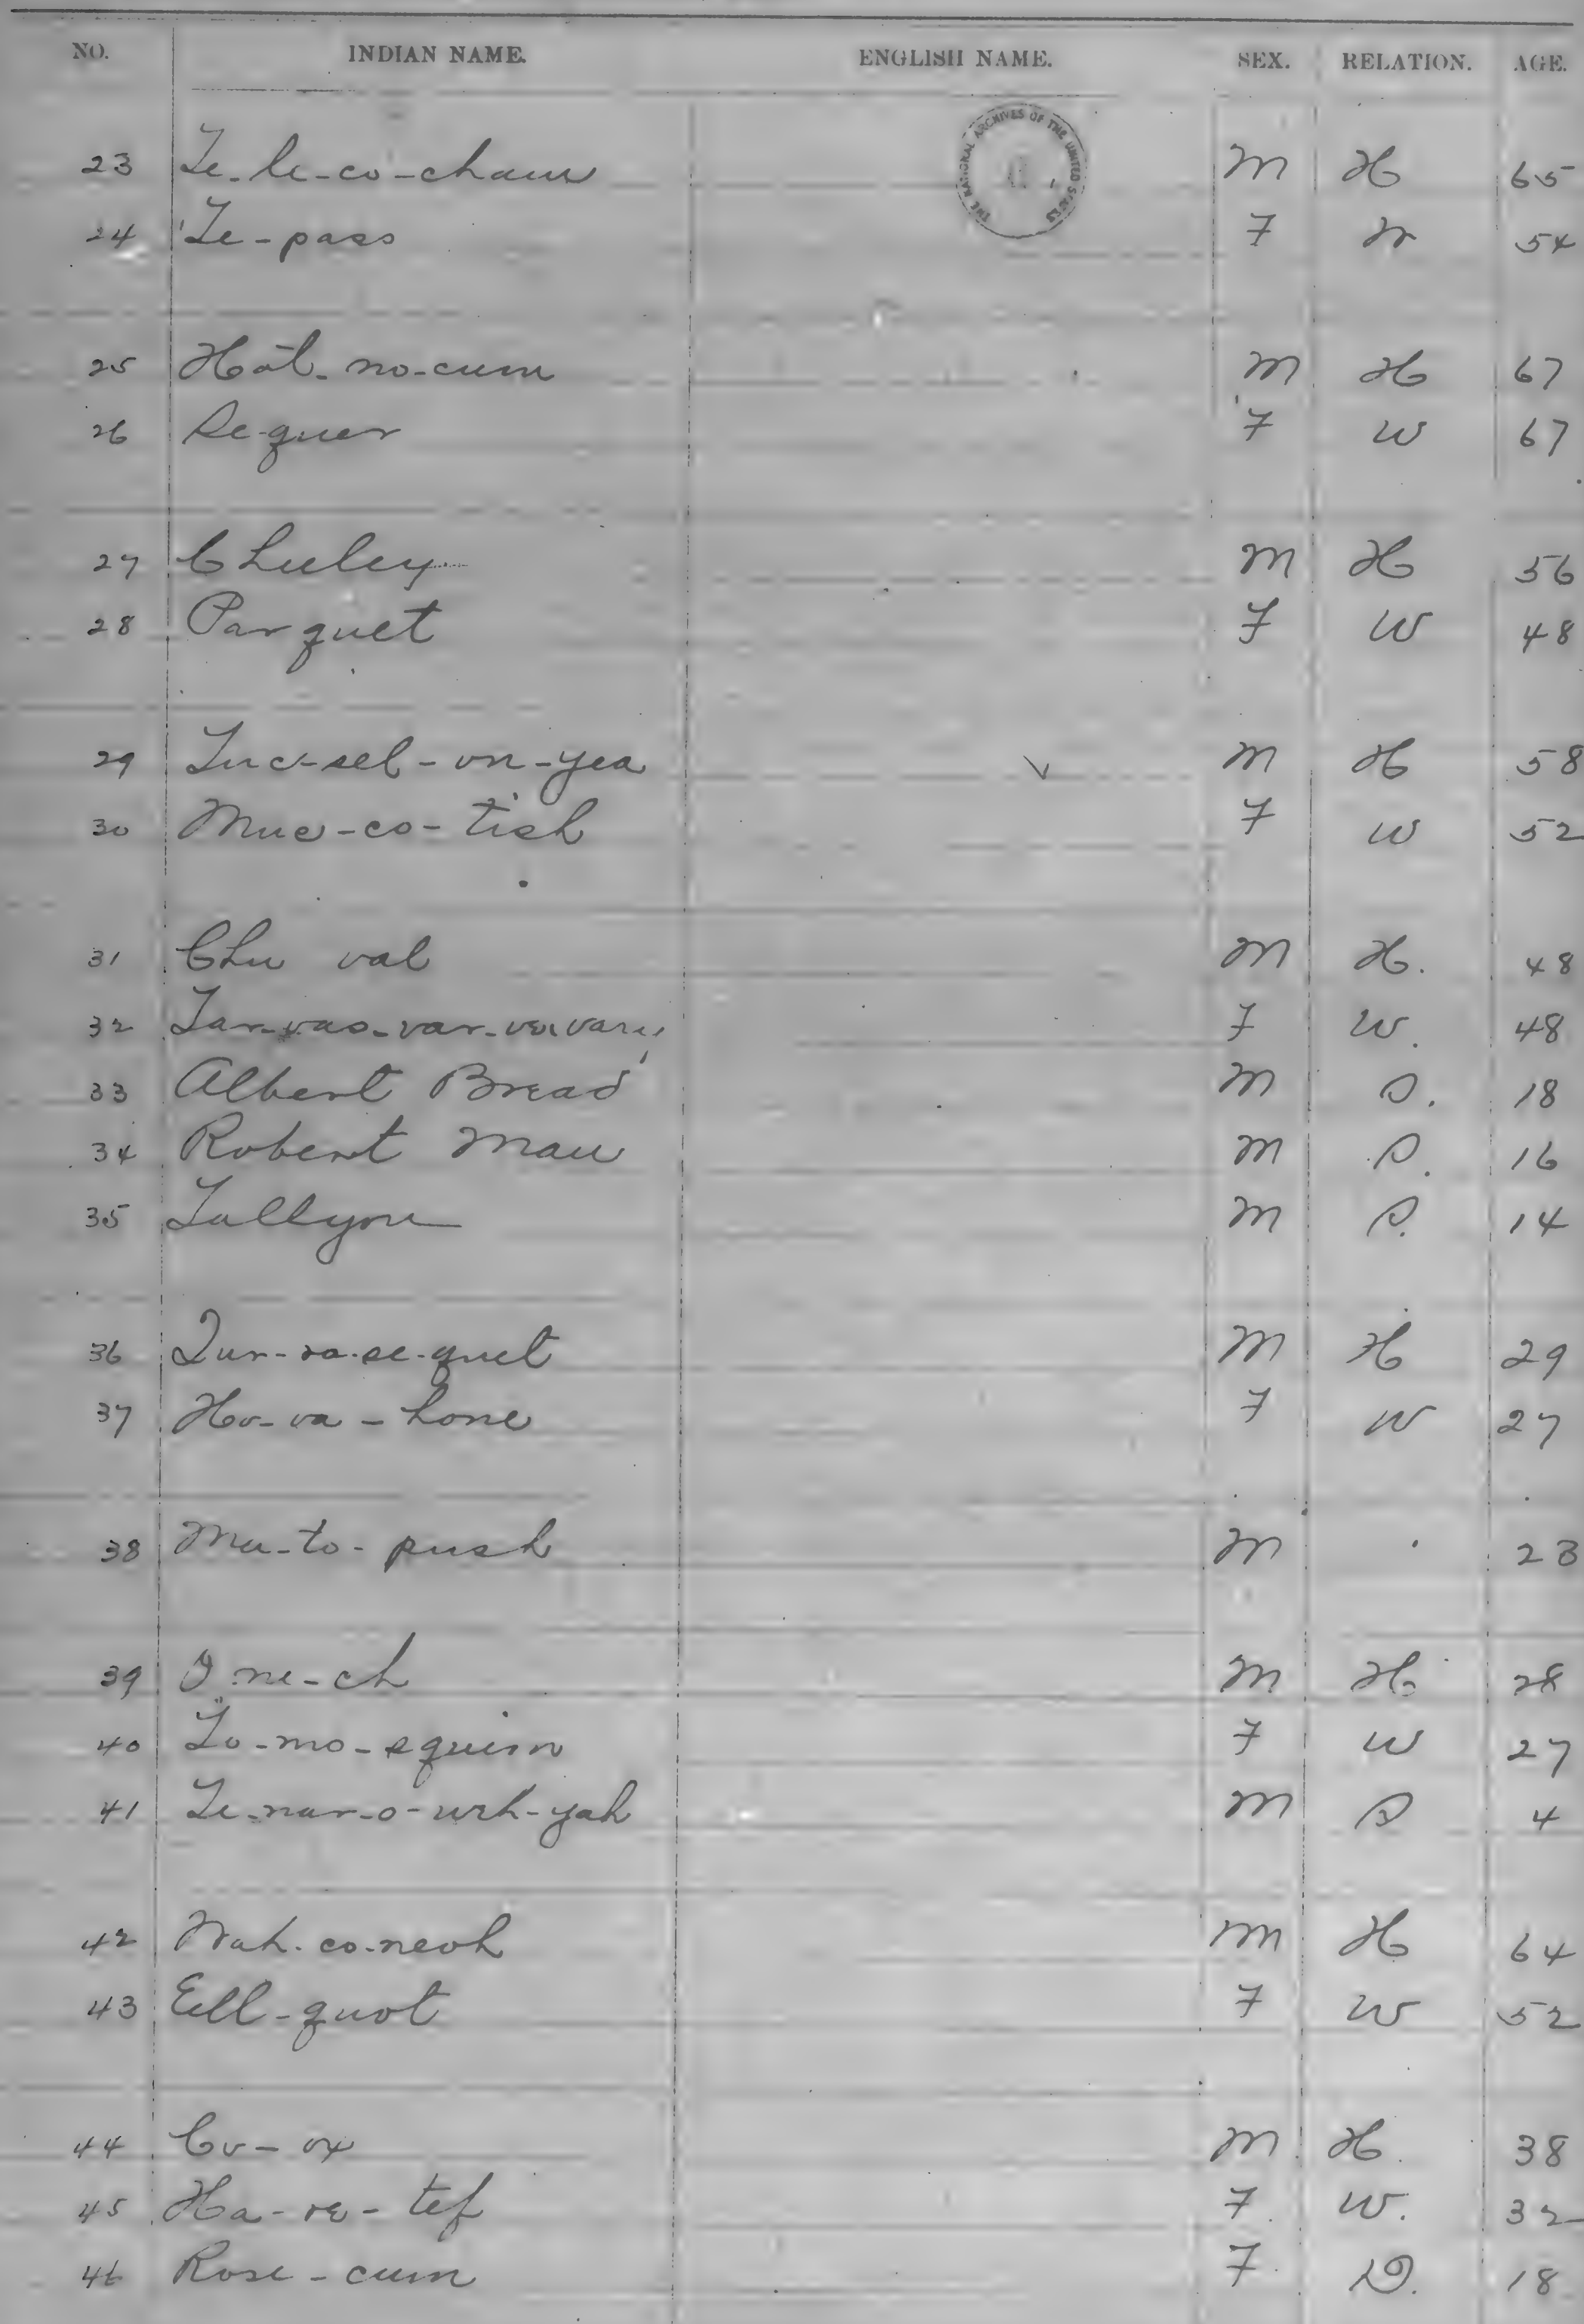 NO. INDIAN NAME. ENGLISH NAME. SEX. RELATION. AGE.
THE NATIONAL ARCHIVES OF THE UNITED STATES
23 Te-le-co-chaum M H 65
24 Te-pass F W 54
25 Hat-no-cum M H 67
26 Se-quer F W 67
27 Chuley M H 56
28 Parquet F W 48
29 Tuc-sel-on-yea M H 58
30 Muc-co-tish F W 52
31 Chu val M H. 48
32 F W. 48
33 Albert Bread M S. 18
34 Robert Mau M S. 16
35 Tullyou M S. 14
36 M H 29
37 Ho-va-hone F W 27
38 Mu-to-push M 23
39 M H 28
40 To-mo-squim F W 27
41 Te-nar-o-weh-yah M S 4
42 M H 64
43 Ell-quot F W 52
44 Co-ox M H. 38
45 Ha-re-tef F. W. 32
46 Rose-cum F. D. 18